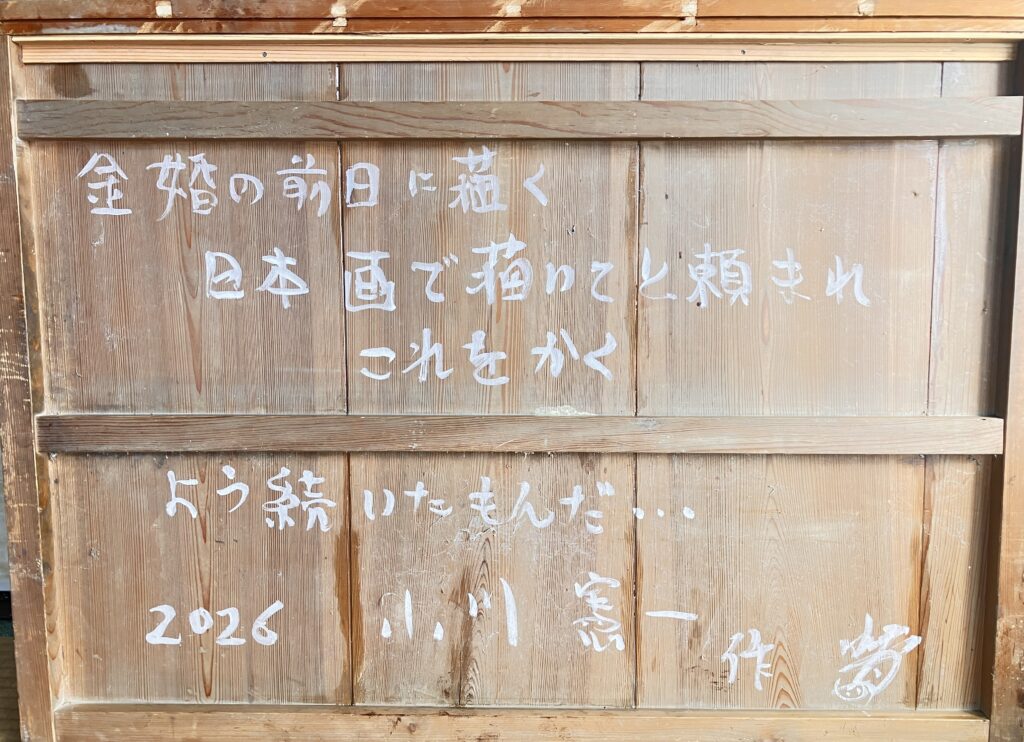 金婚の前日に描く
日本画で描いてと頼まれ
これをかく
よう続いたもんだ…
2026 小川憲一
作